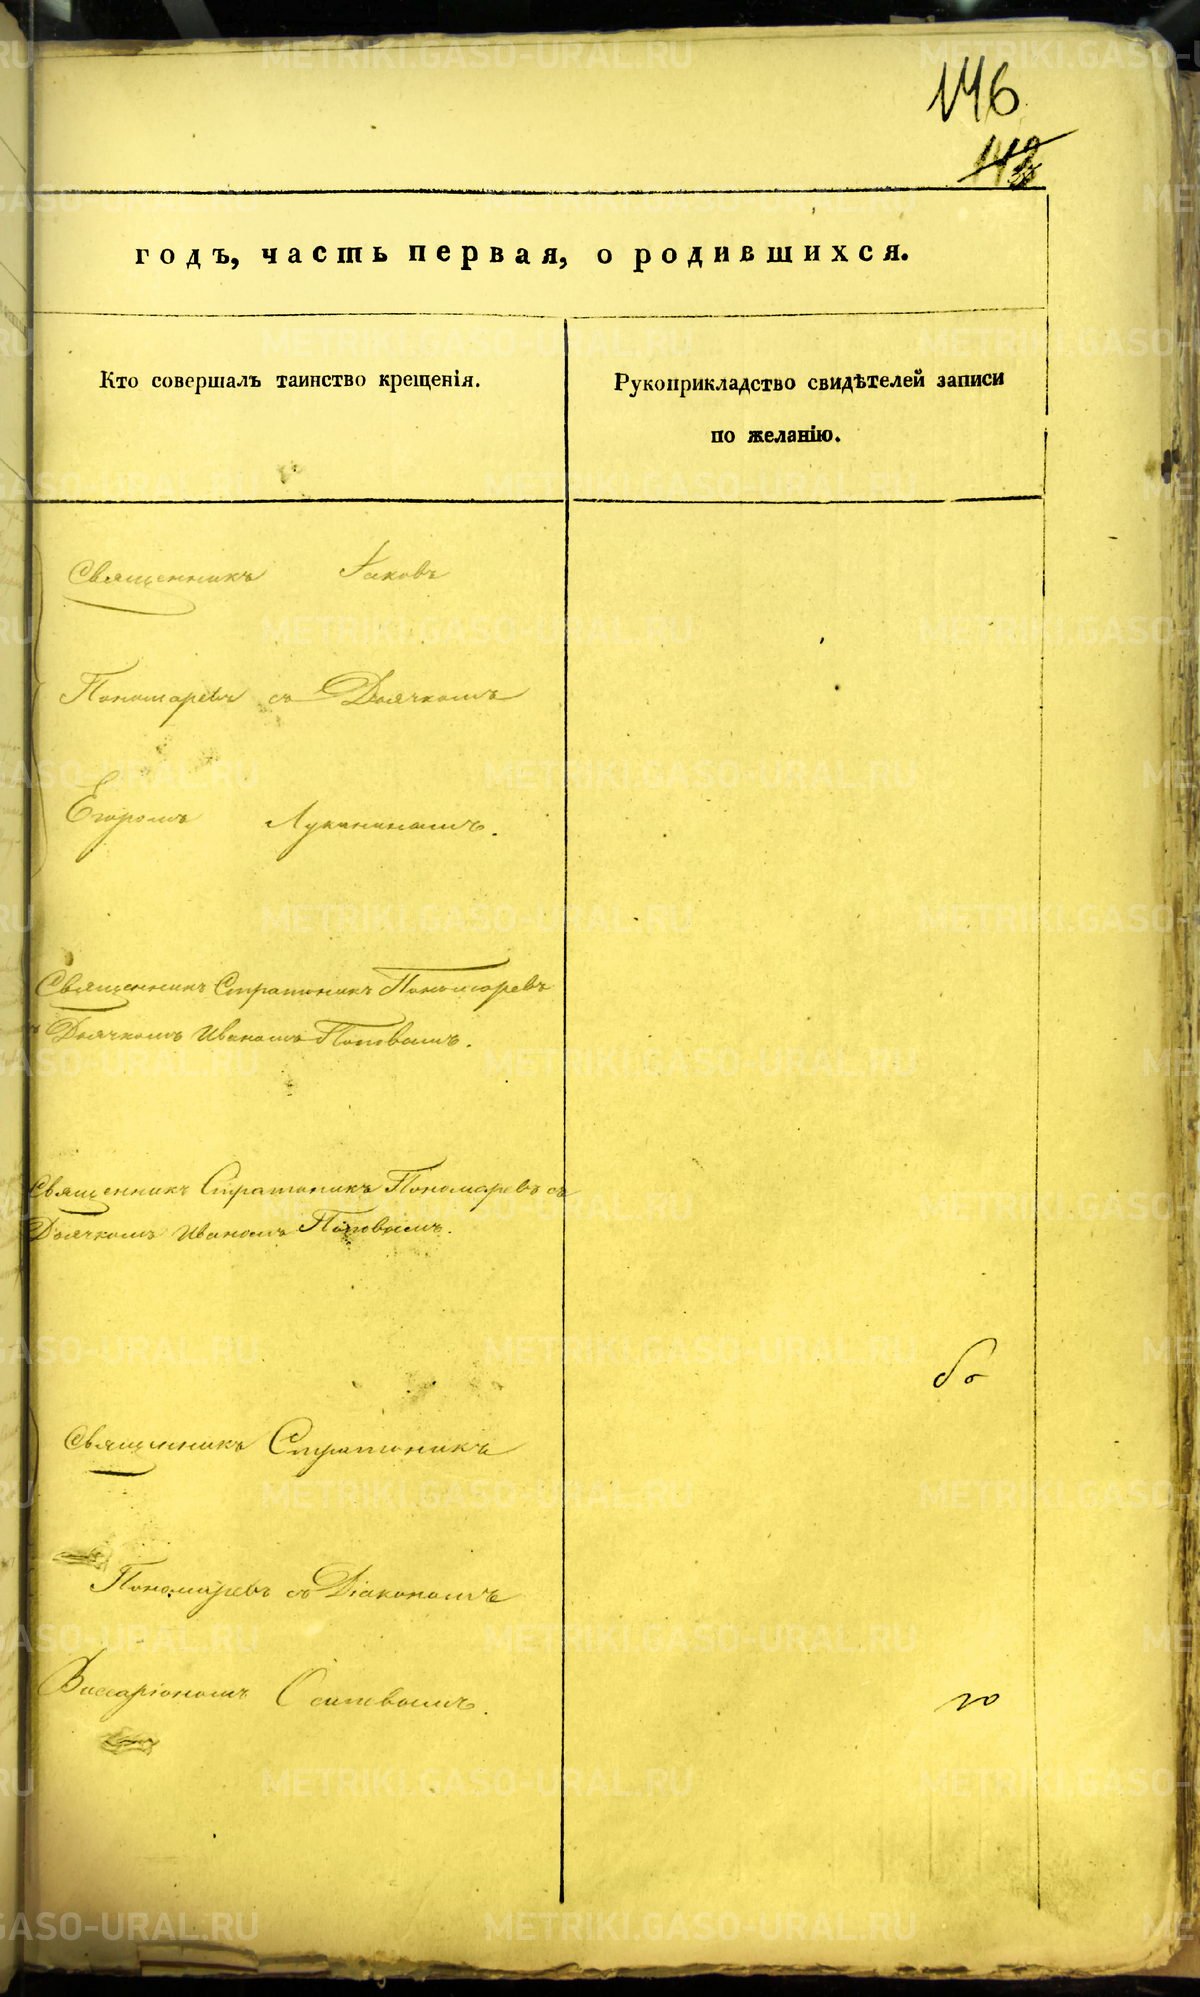 146
годъ, часть первая, о родившихся.
Кто совершалъ таинство крещенія.
Рукоприкладство свидѣтелей записи
по желанію.
Священникъ Іаковъ
Пономаревъ съ Дьячкомъ
Егоромъ Луканинымъ.
Священникъ Стратоникъ Пономаревъ
Дьячкомъ Иваномъ Поповымъ.
Священникъ Стратоникъ Пономаревъ съ
Дьячкомъ Иваномъ Поповымъ.
Священникъ Стратоникъ
Пономаревъ съ Діакономъ
Виссаріономъ
METRIKI.GASO-URAL.RU